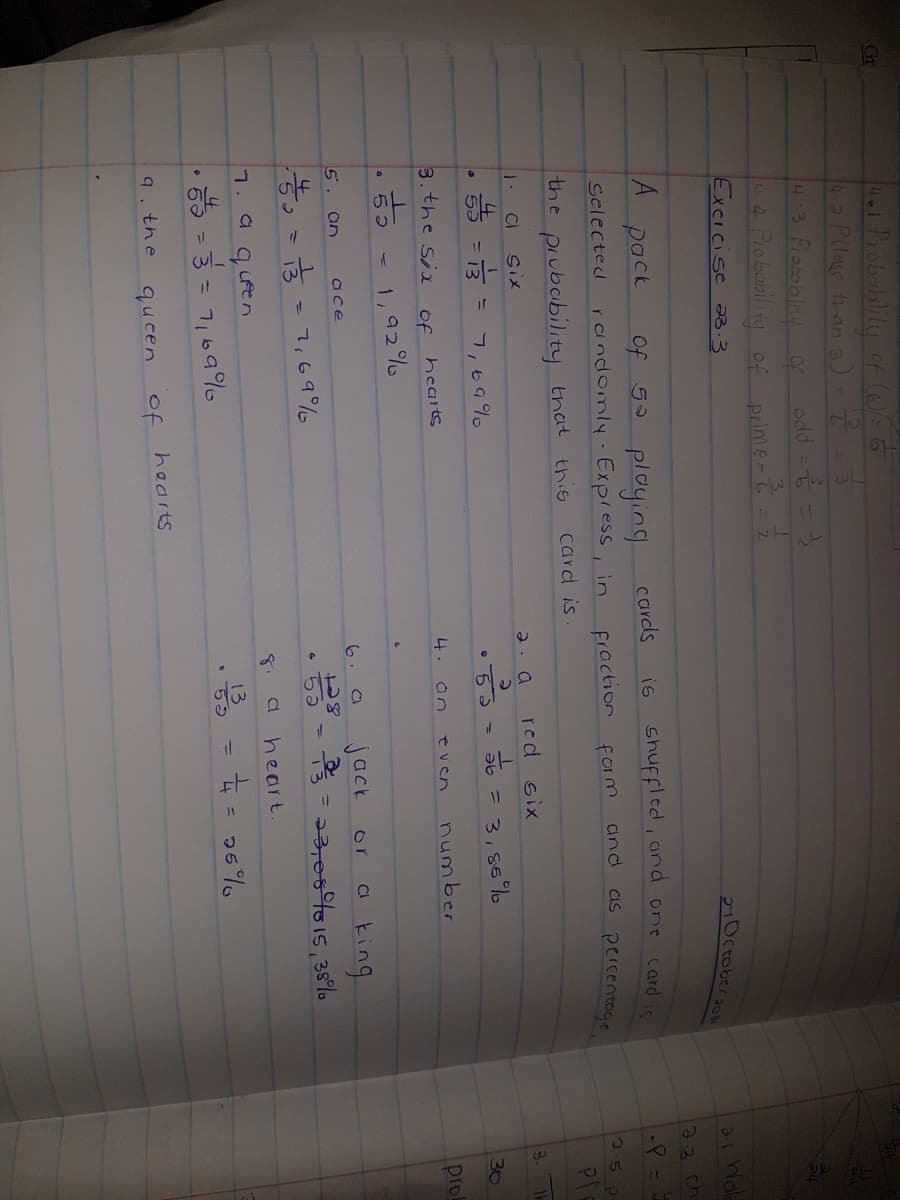 4.1 Probability of (6) = 1/6
4.2 P(less than 3) = 2/6 = 1/3
4.3 Probability of odd = 3/6 = 1/2
4.4 Probability of prime = 3/6 = 1/2
Exercise 23.3
21 October
A pack of 52 playing cards is shuffled, and one card is
selected randomly. Express, in fraction form and as percentage,
the probability that this card is.
1. a six
2. a red six
• 4/52 = 1/13 = 7,69%
• 2/52 = 1/26 = 3,85%
3. the six of hearts
4. an even number
• 1/52 = 1,92%
•
5. an ace
6. a jack or a king
• 4/52 = 1/13 = 7,69%
• 8/52 = 2/13 = 23,08% 15,38%
7. a queen
8. a heart.
• 4/52 = 1/3 = 7,69%
• 13/52 = 1/4 = 25%
9. the queen of hearts
•
2.3 ch
• P =
2.5 P
3.
30